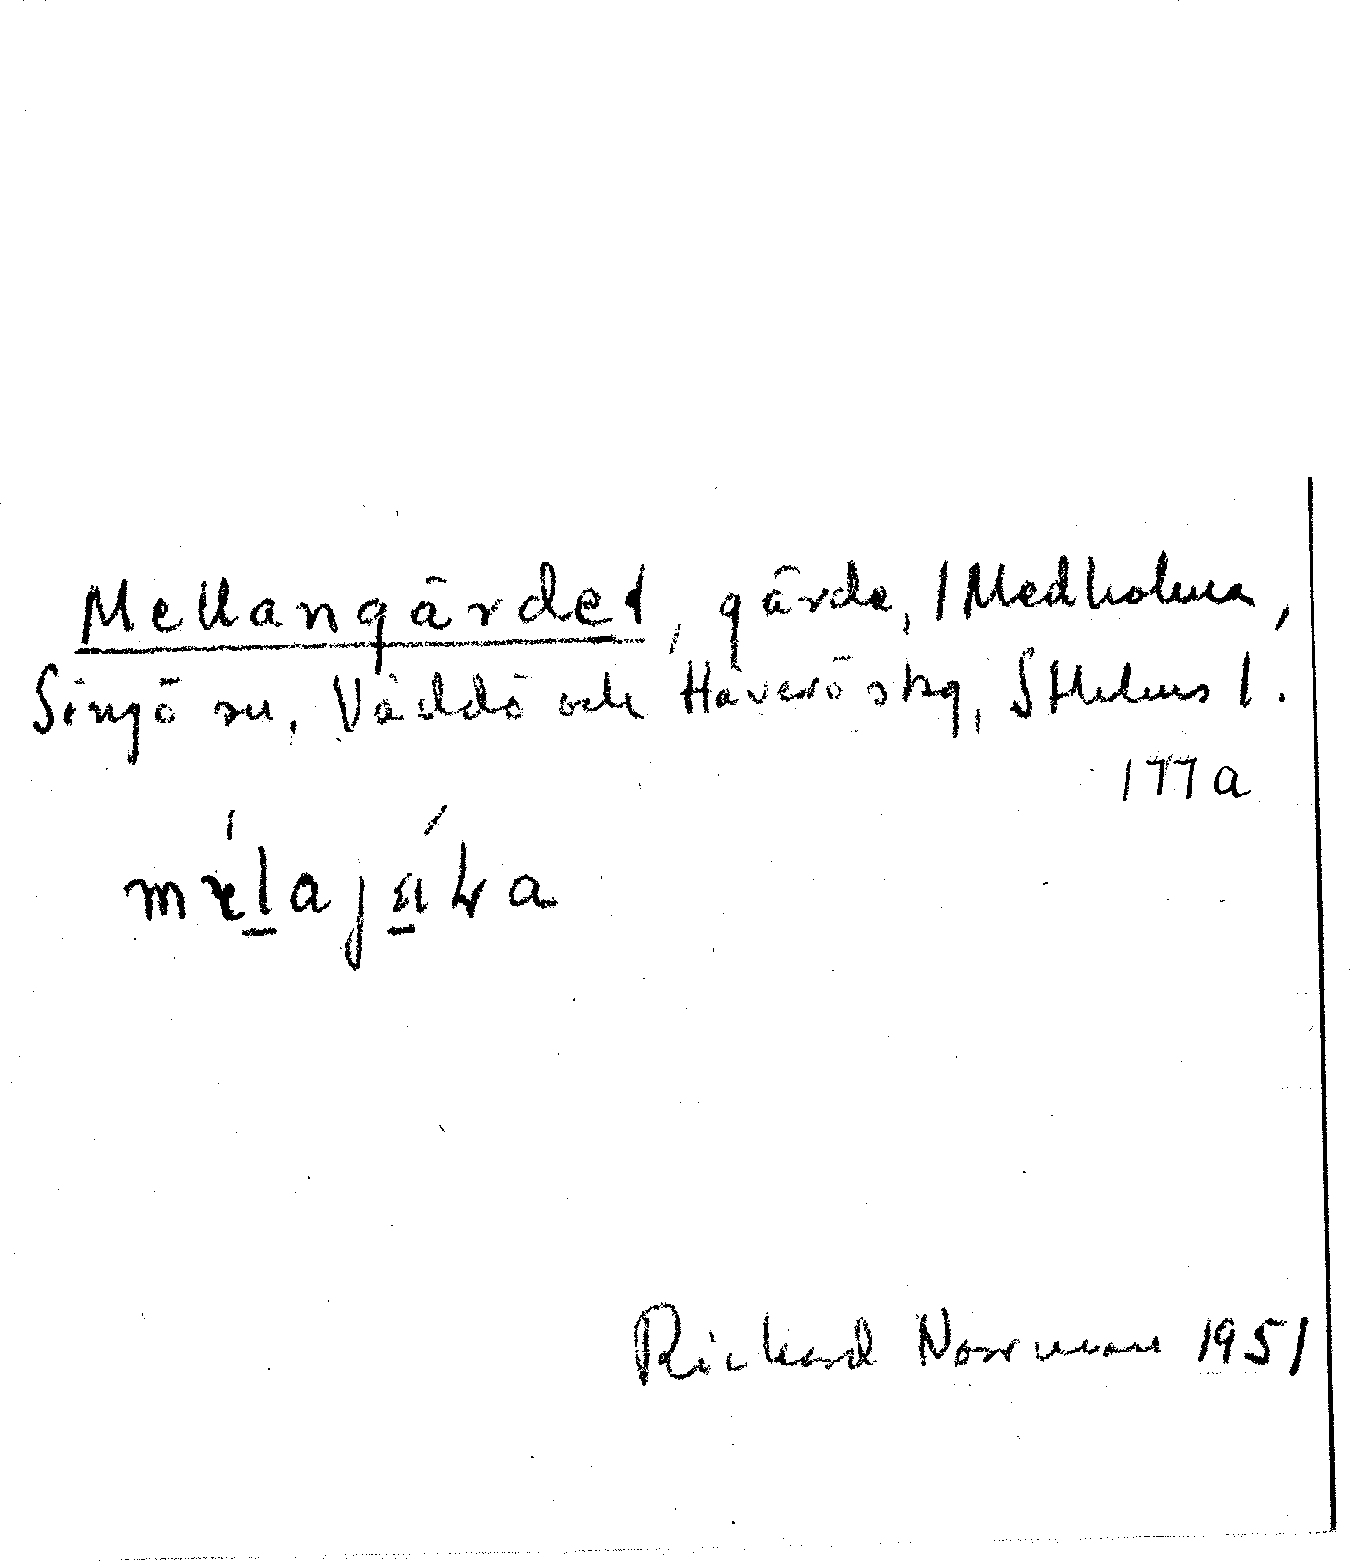 Mellangärdet, gärde, 1 Medholma,
Singö sn, Väddö och Häverö skg, Sthlms l.
177 a
Rickard Norrman 1951